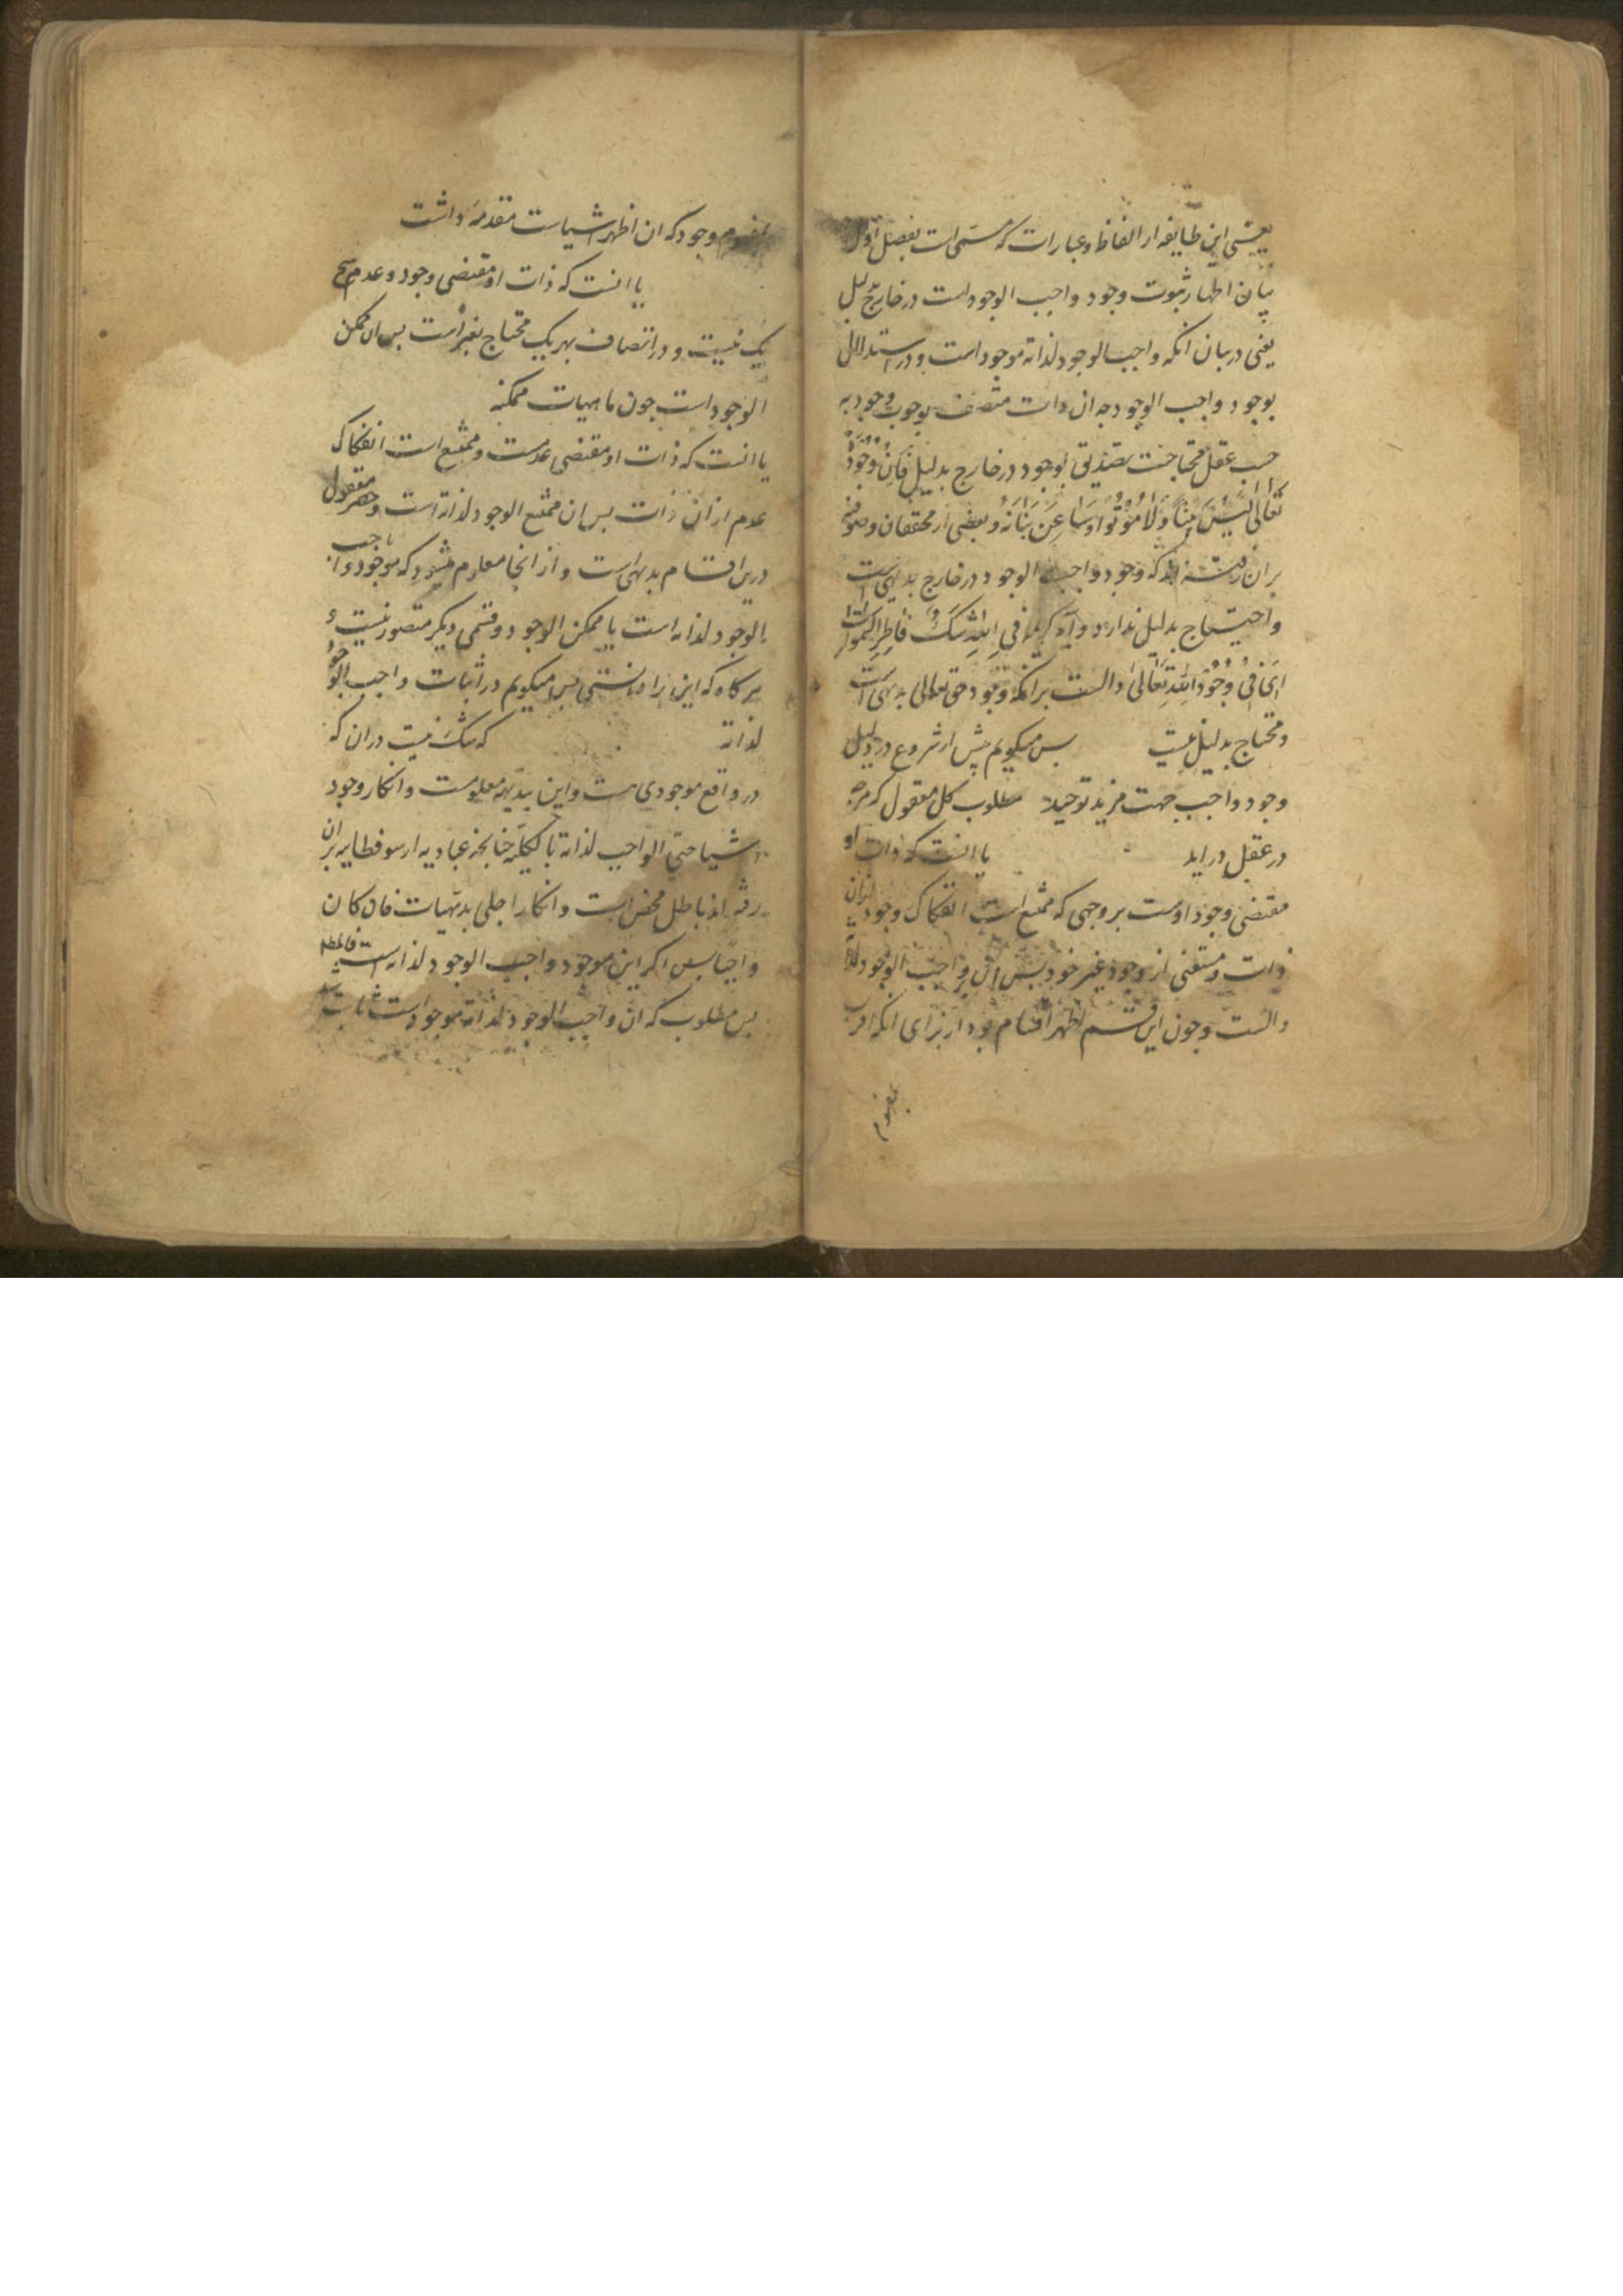 یعنی این طایفه از الفاظ و عبارات که مسمی است بفصل اول
بیان اظهار ثبوت وجود واجب الوجود است در خارج بدلیل
یعنی در بیان انکه واجب الوجود لذاته موجود است و در استدلال
بوجود واجب الوجود چه ان ذات متصف بوجوب وجود به
حسب عقل محتاجست بتصدیق بوجود در خارج بدلیل فان وجوده
تعالی لیس بینا و لا
و بعضی از محققان و صوفیه
بران رفته اند که وجود واجب الوجود در خارج بدیهی است
و احتیاج بدلیل ندارد و آیه کریمه افی الله شک فاطر السموات
ای فی وجود الله تعالی دالست برانکه وجود حق تعالی بدیهی است
و محتاج بدلیل نیست پس میکویم پیش از شروع در دلیل
وجود واجب جهت مزید توحید مطلوب کل معقول که هرچه
در عقل دراید یا انست که ذات او
مقتضی وجود اوست بر وجهی که ممتنع است انفکاک وجود ازان
ذات و مستغنی از وجود غیر خود پس ان واجب الوجود لذاته
دالست و چون این قسم اظهر اقسام بود از برای انکه اقرب
بمفهوم
بمفهوم وجود که ان اظهر اشیاست مقدم داشت
یا انست که ذات او مقتضی وجود و عدم هیچ
یک نیست و در اتصاف بهر یک محتاج بغیر است پس ان ممکن
الوجود است چون ماهیات ممکنه
یا انست که ذات او مقتضی عدمست و ممتنع است انفکاک
عدم از ان ذات پس ان ممتنع الوجود لذاته است و حصر معقول
درین اقسام بدیهی است و از انجا معلوم میشود که موجود یا واجب
الوجود لذاته است یا ممکن الوجود و قسمی دیکر متصور نیست و
هرکاه که این را دانستی پس میکویم در اثبات واجب الوجود
لذاته که شک نیست دران که
در واقع موجودی هست و این بدیهه معلومست و انکار وجود
اشیا حتی الواجب لذاته بالکلیه چنانچه عنادیه از سوفسطاییه بران
رفته اند باطل محض است و انکار اجلی بدیهیات فان کان
واجبا پس اکر این موجود واجب الوجود لذاته است فالمطلوب
پس مطلوب که ان واجب الوجود لذاته موجود است ثابت شد